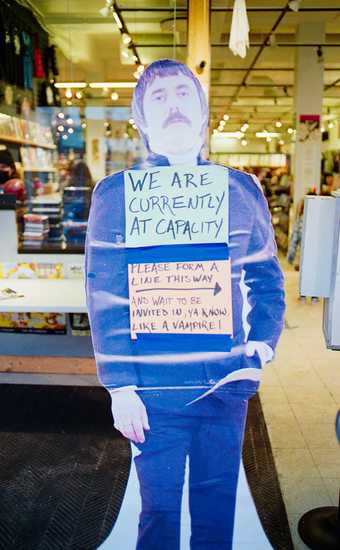 WE ARE
CURRENTLY
AT CAPACITY
PLEASE FORM A
LINE THIS WAY
AND WAIT TO BE
INVITED IN, YA KNOW,
LIKE A VAMPIRE!